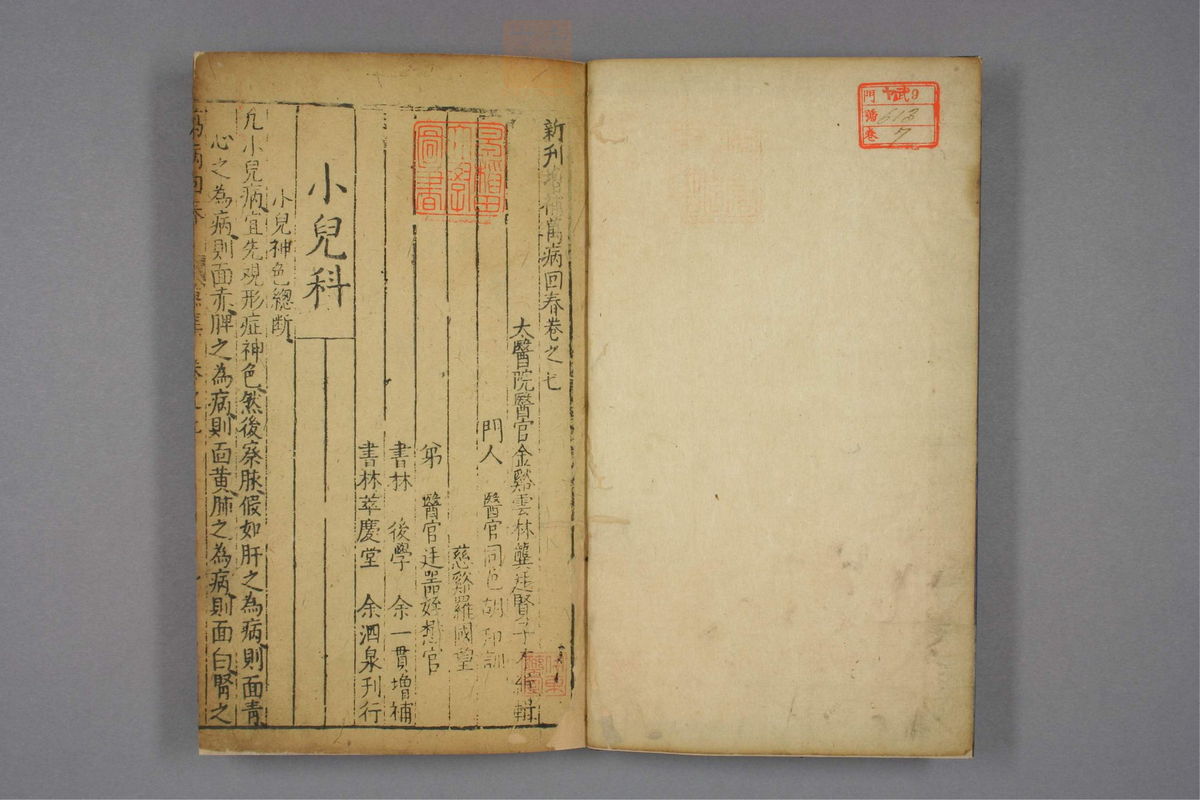 新刊增補萬病回春卷之七
太醫院醫官金谿雲林龔廷賢子才編輯
門人　醫官同邑胡
慈谿羅國望
弟　醫官廷器姪懋官
書林　後學　余一貫增補
書林萃慶堂　余泗泉刊行
小兒科
小兒神色總斷
凡小兒病宜先觀形症神色然後察脉假如肝之為病則面青
心之為病則面赤脾之為病則面黃肺之為病則面白腎之
萬病回春
門 貳9
號 613
卷 7
早稻田大學圖書